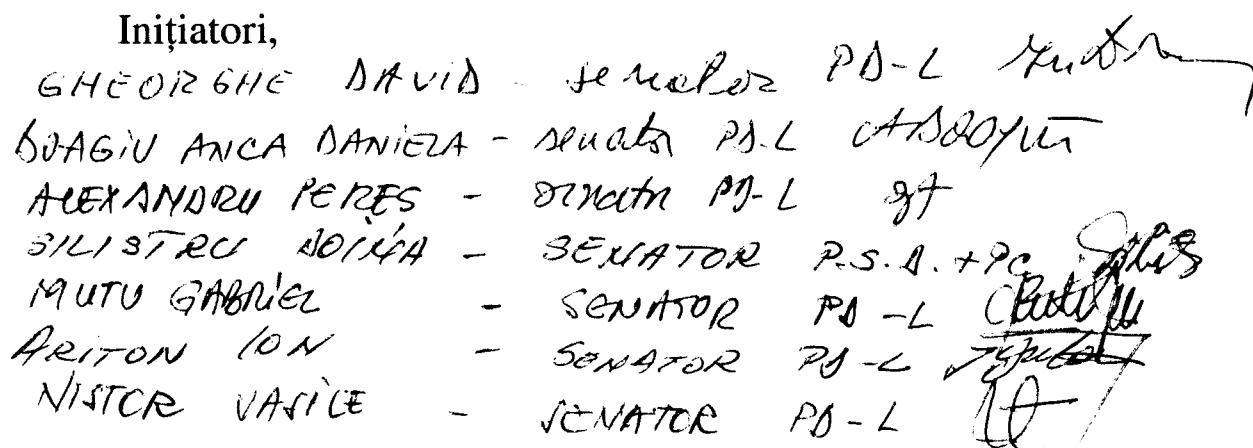 Inițiatori,
GHEORGHE DAVID - senator PD-L
BOAGIU ANCA DANIELA - senator PD-L
ALEXANDRU PEREȘ - senator PD-L
SILISTRU DOINA - SENATOR P.S.D. + PC
MUTU GABRIEL - SENATOR PD-L
ARITON ION - SENATOR PD-L
NISTOR VASILE - SENATOR PD-L